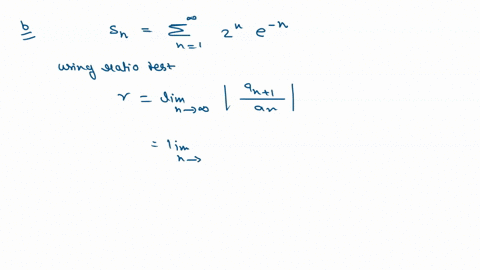 b   Sn = ∑_{n=1}^{∞} 2^n e^{-n}
using ratio test
r = lim_{n→∞} | a_{n+1} / a_n |
= lim_{n→}